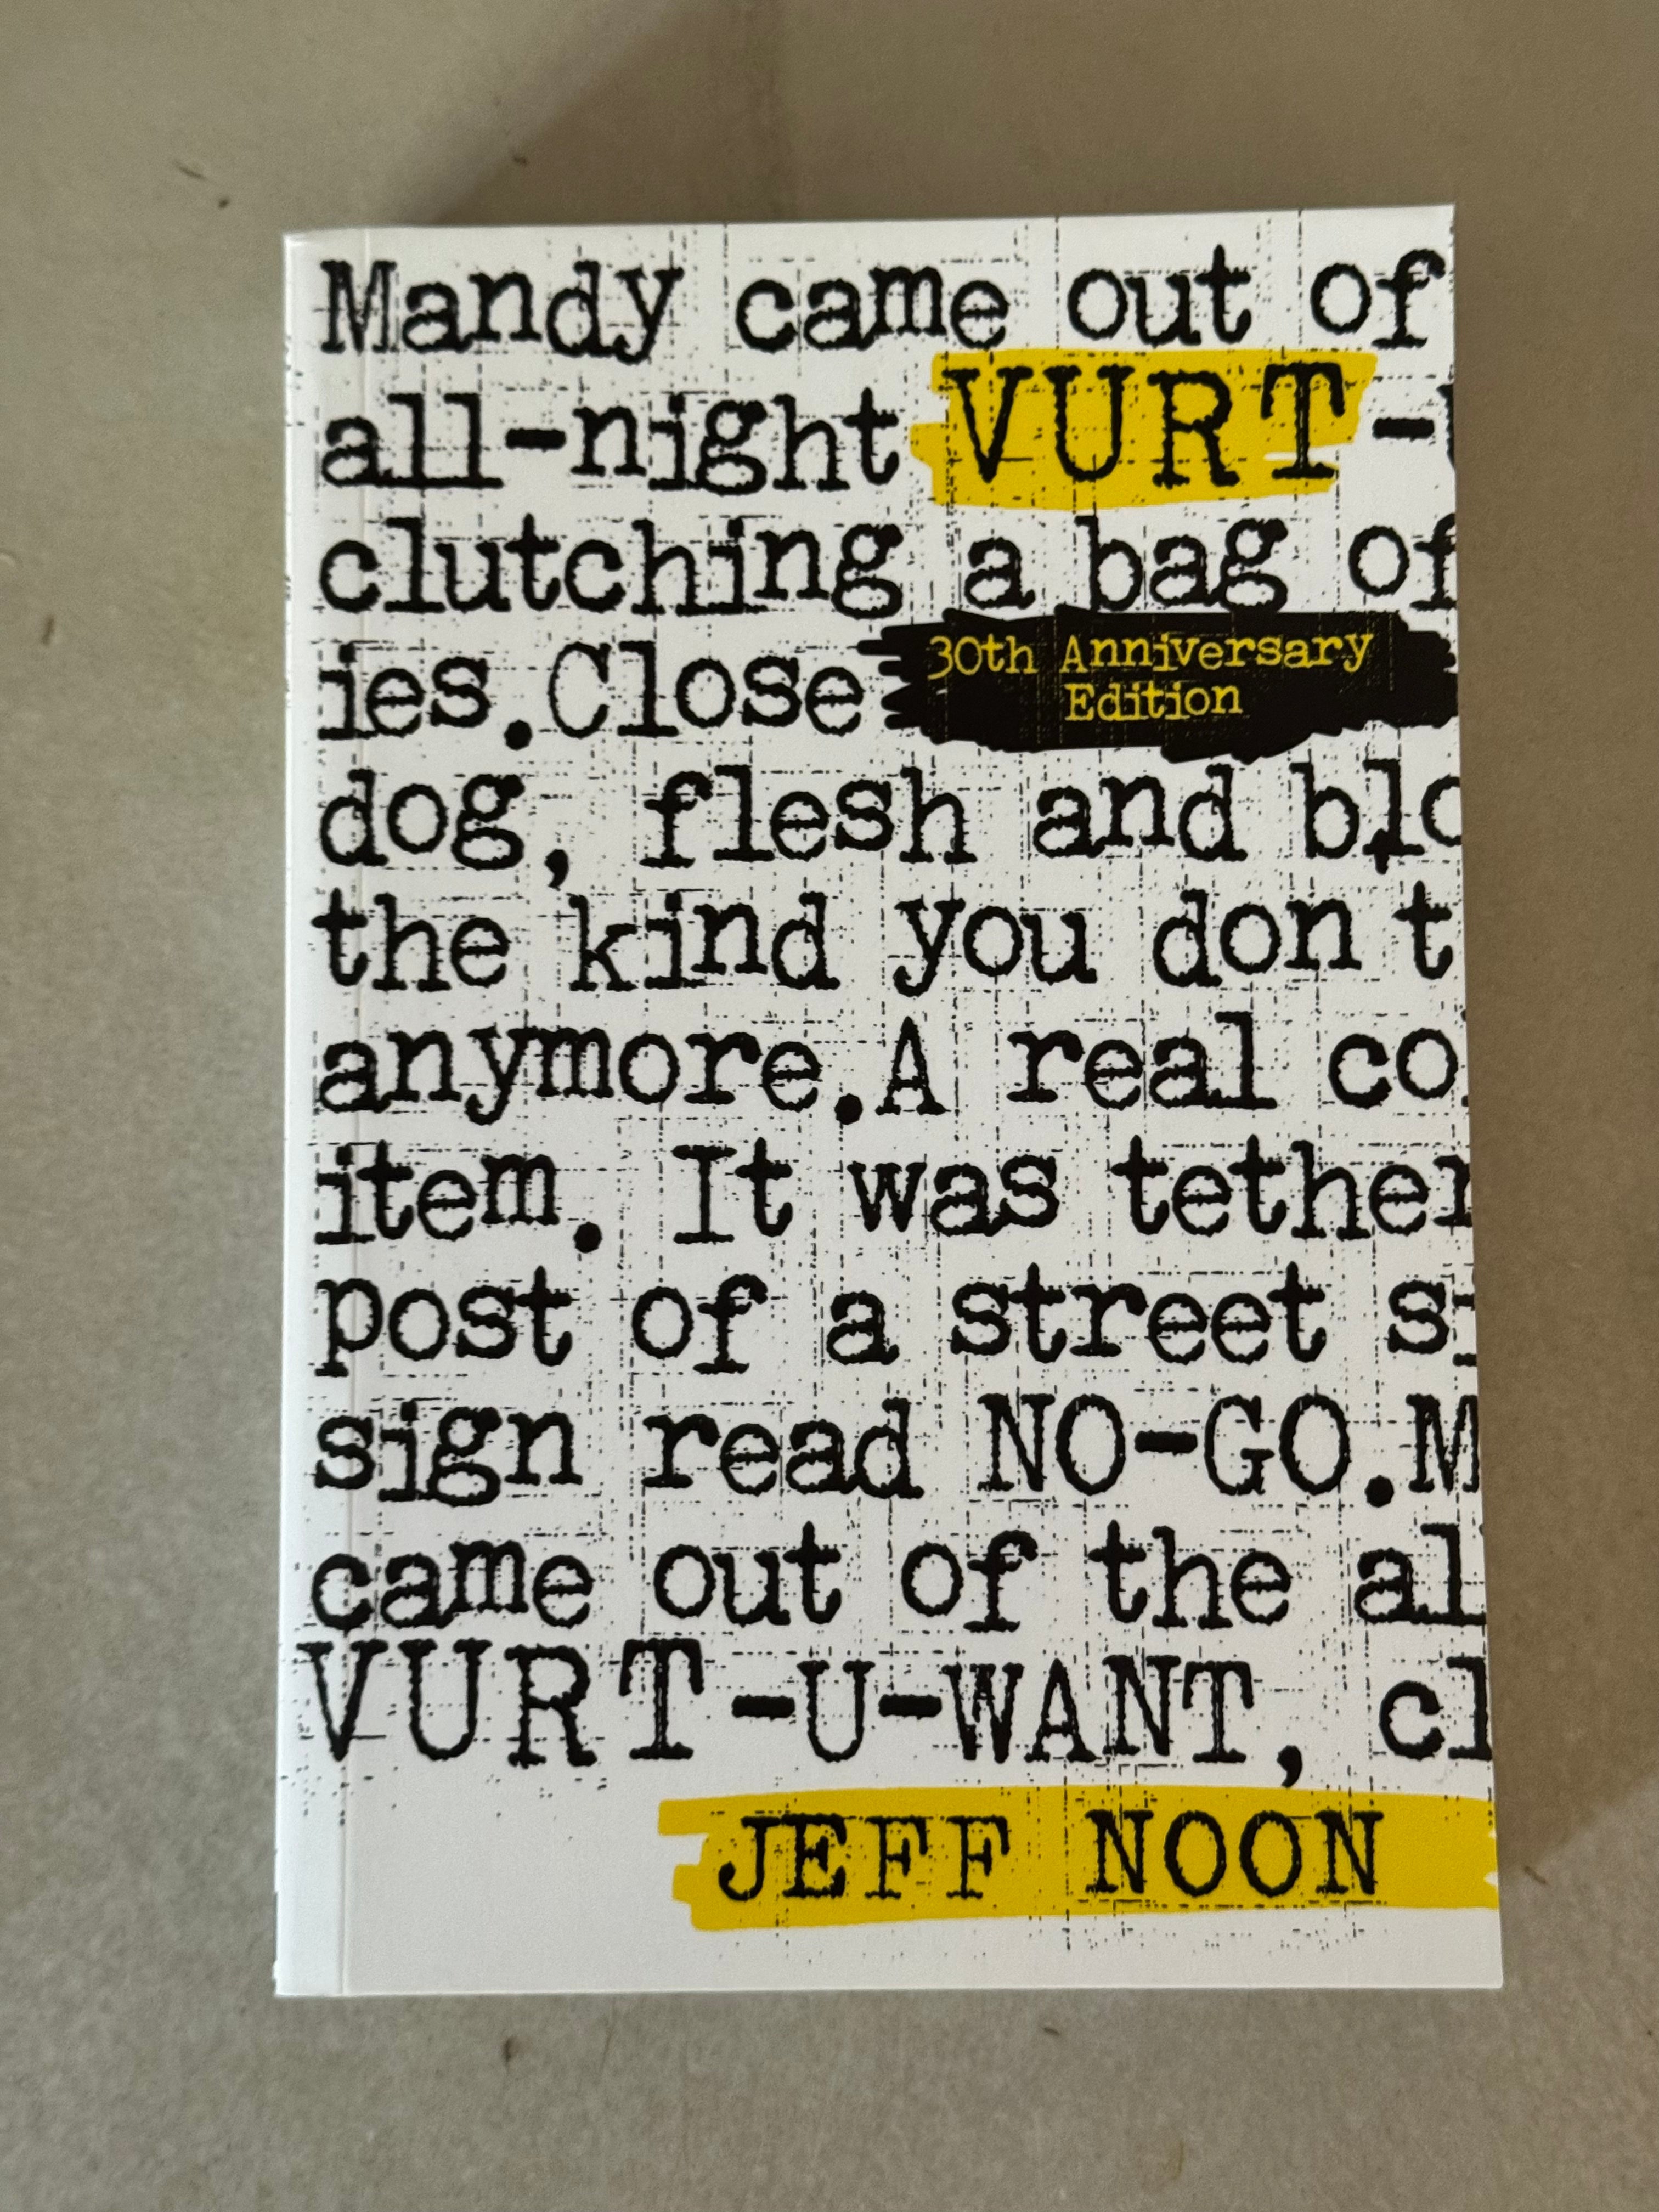 Mandy came out of
all-night VURT-
clutching a bag of
ies.Close
30th Anniversary
Edition
dog, flesh and blo
the kind you don t
anymore.A real co
item. It was tether
post of a street s
sign read NO-GO.M
came out of the al
VURT-U-WANT, cl
JEFF NOON